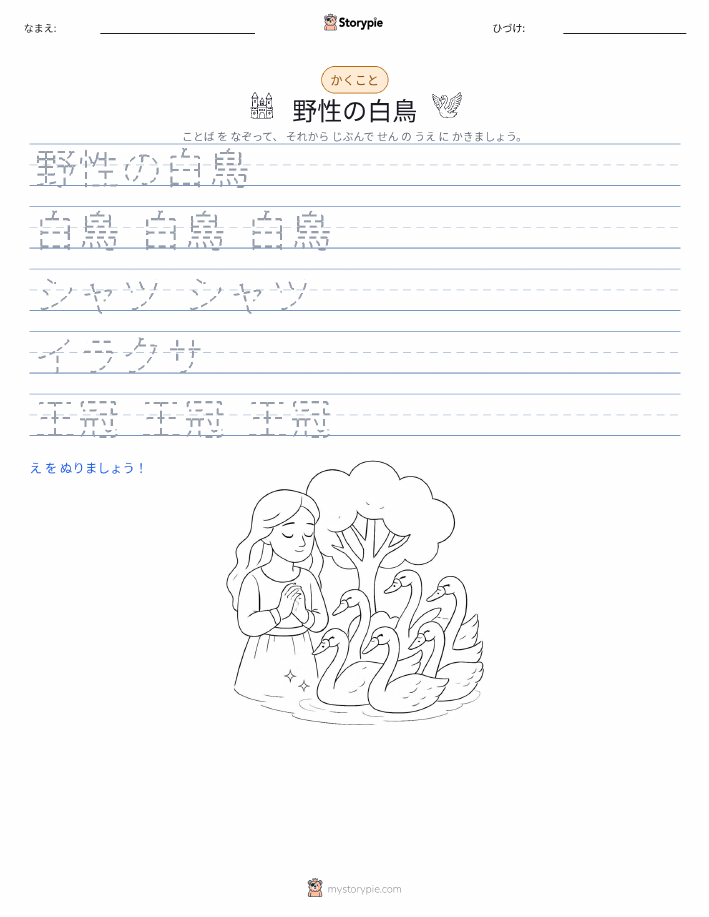 なまえ:
Storypie
ひづけ:
かくこと
野性の白鳥
ことば を なぞって、 それから じぶんで せん の うえ に かきましょう。
野性の白鳥
白鳥 白鳥 白鳥
シャツ シャツ
イラクサ
王冠 王冠 王冠
え を ぬりましょう！
mystorypie.com